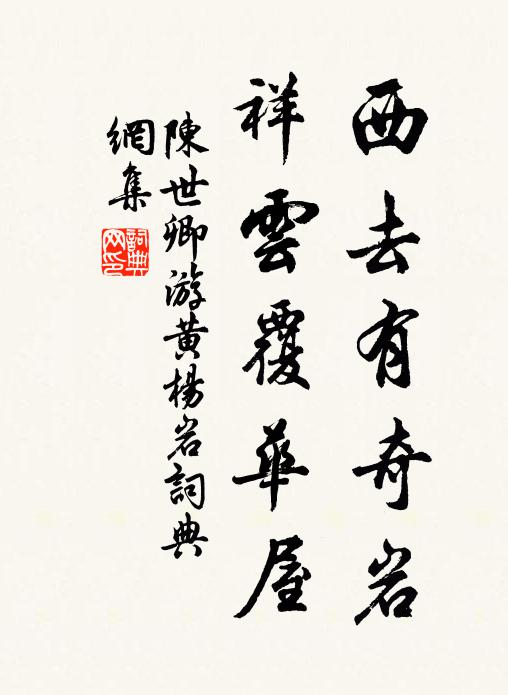 西去有奇岩
祥雲覆華屋
陳世卿游黄楊岩詞典
網集
詞典網印